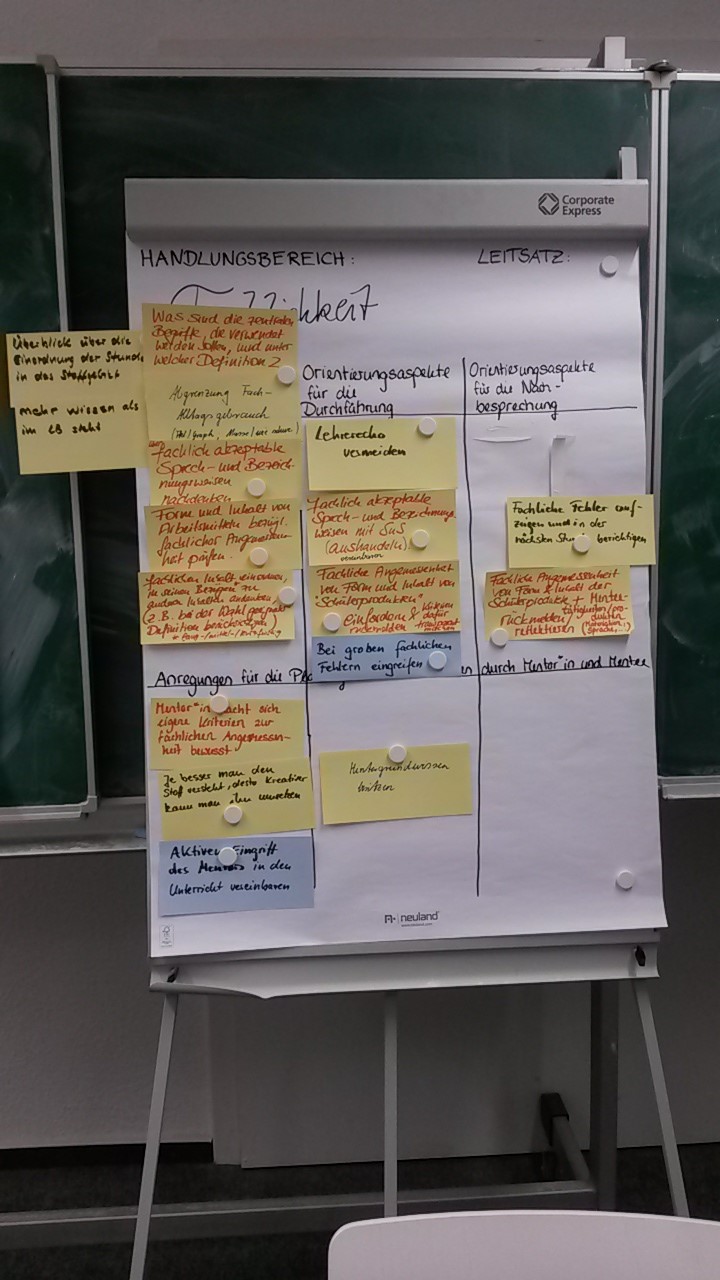 Corporate
Express
HANDLUNGSBEREICH:
LEITSATZ:
Überblick über die
Einordnung der Stunde
in das Stoffgebiet
mehr wissen als
im LB steht
Was sind die zentralen
Begriffe, die verwendet
werden sollen, und unter
welcher Definition?
Abgrenzung Fach-
Alltagsgebrauch
fachlich akzeptable
Sprech- und Bezeich-
nungsweisen
nachdenken
Form und Inhalt von
Arbeitsmitteln bezügl.
fachlicher Angemessen-
heit prüfen.
fachlichen Inhalt einordnen,
in seinen Bezügen zu
anderen Inhalten
(z.B. bei der Wahl geeigneter
Definition berücksichtigen)
Orientierungsaspekte
für die
Durchführung
Lehrerecho
vermeiden
fachlich akzeptable
Sprech- und Bezeichnungs-
weisen mit SuS
(aushandeln)
vereinbaren
Fachliche Angemessenheit
von Form und Inhalt von
"Schülerprodukten"
einfordern &
Bei groben fachlichen
Fehlern eingreifen
Orientierungsaspekte
für die Nach-
besprechung
Fachliche Fehler auf-
zeigen und in der
nächsten Stunde berichtigen
Fachliche Angemessenheit
von Form & Inhalt der
Schülerprodukte +
rückmelden/
reflektieren
Anregungen für die durch Mentor*in und Mentee
Mentor*in macht sich
eigene Kriterien zur
fachlichen Angemessen-
heit bewusst
Je besser man den
Stoff versteht, desto kreativer
kann man ihn umsetzen
Aktiven Eingriff
des Mentors in den
Unterricht vereinbaren
Hintergrundwissen
nutzen
neuland